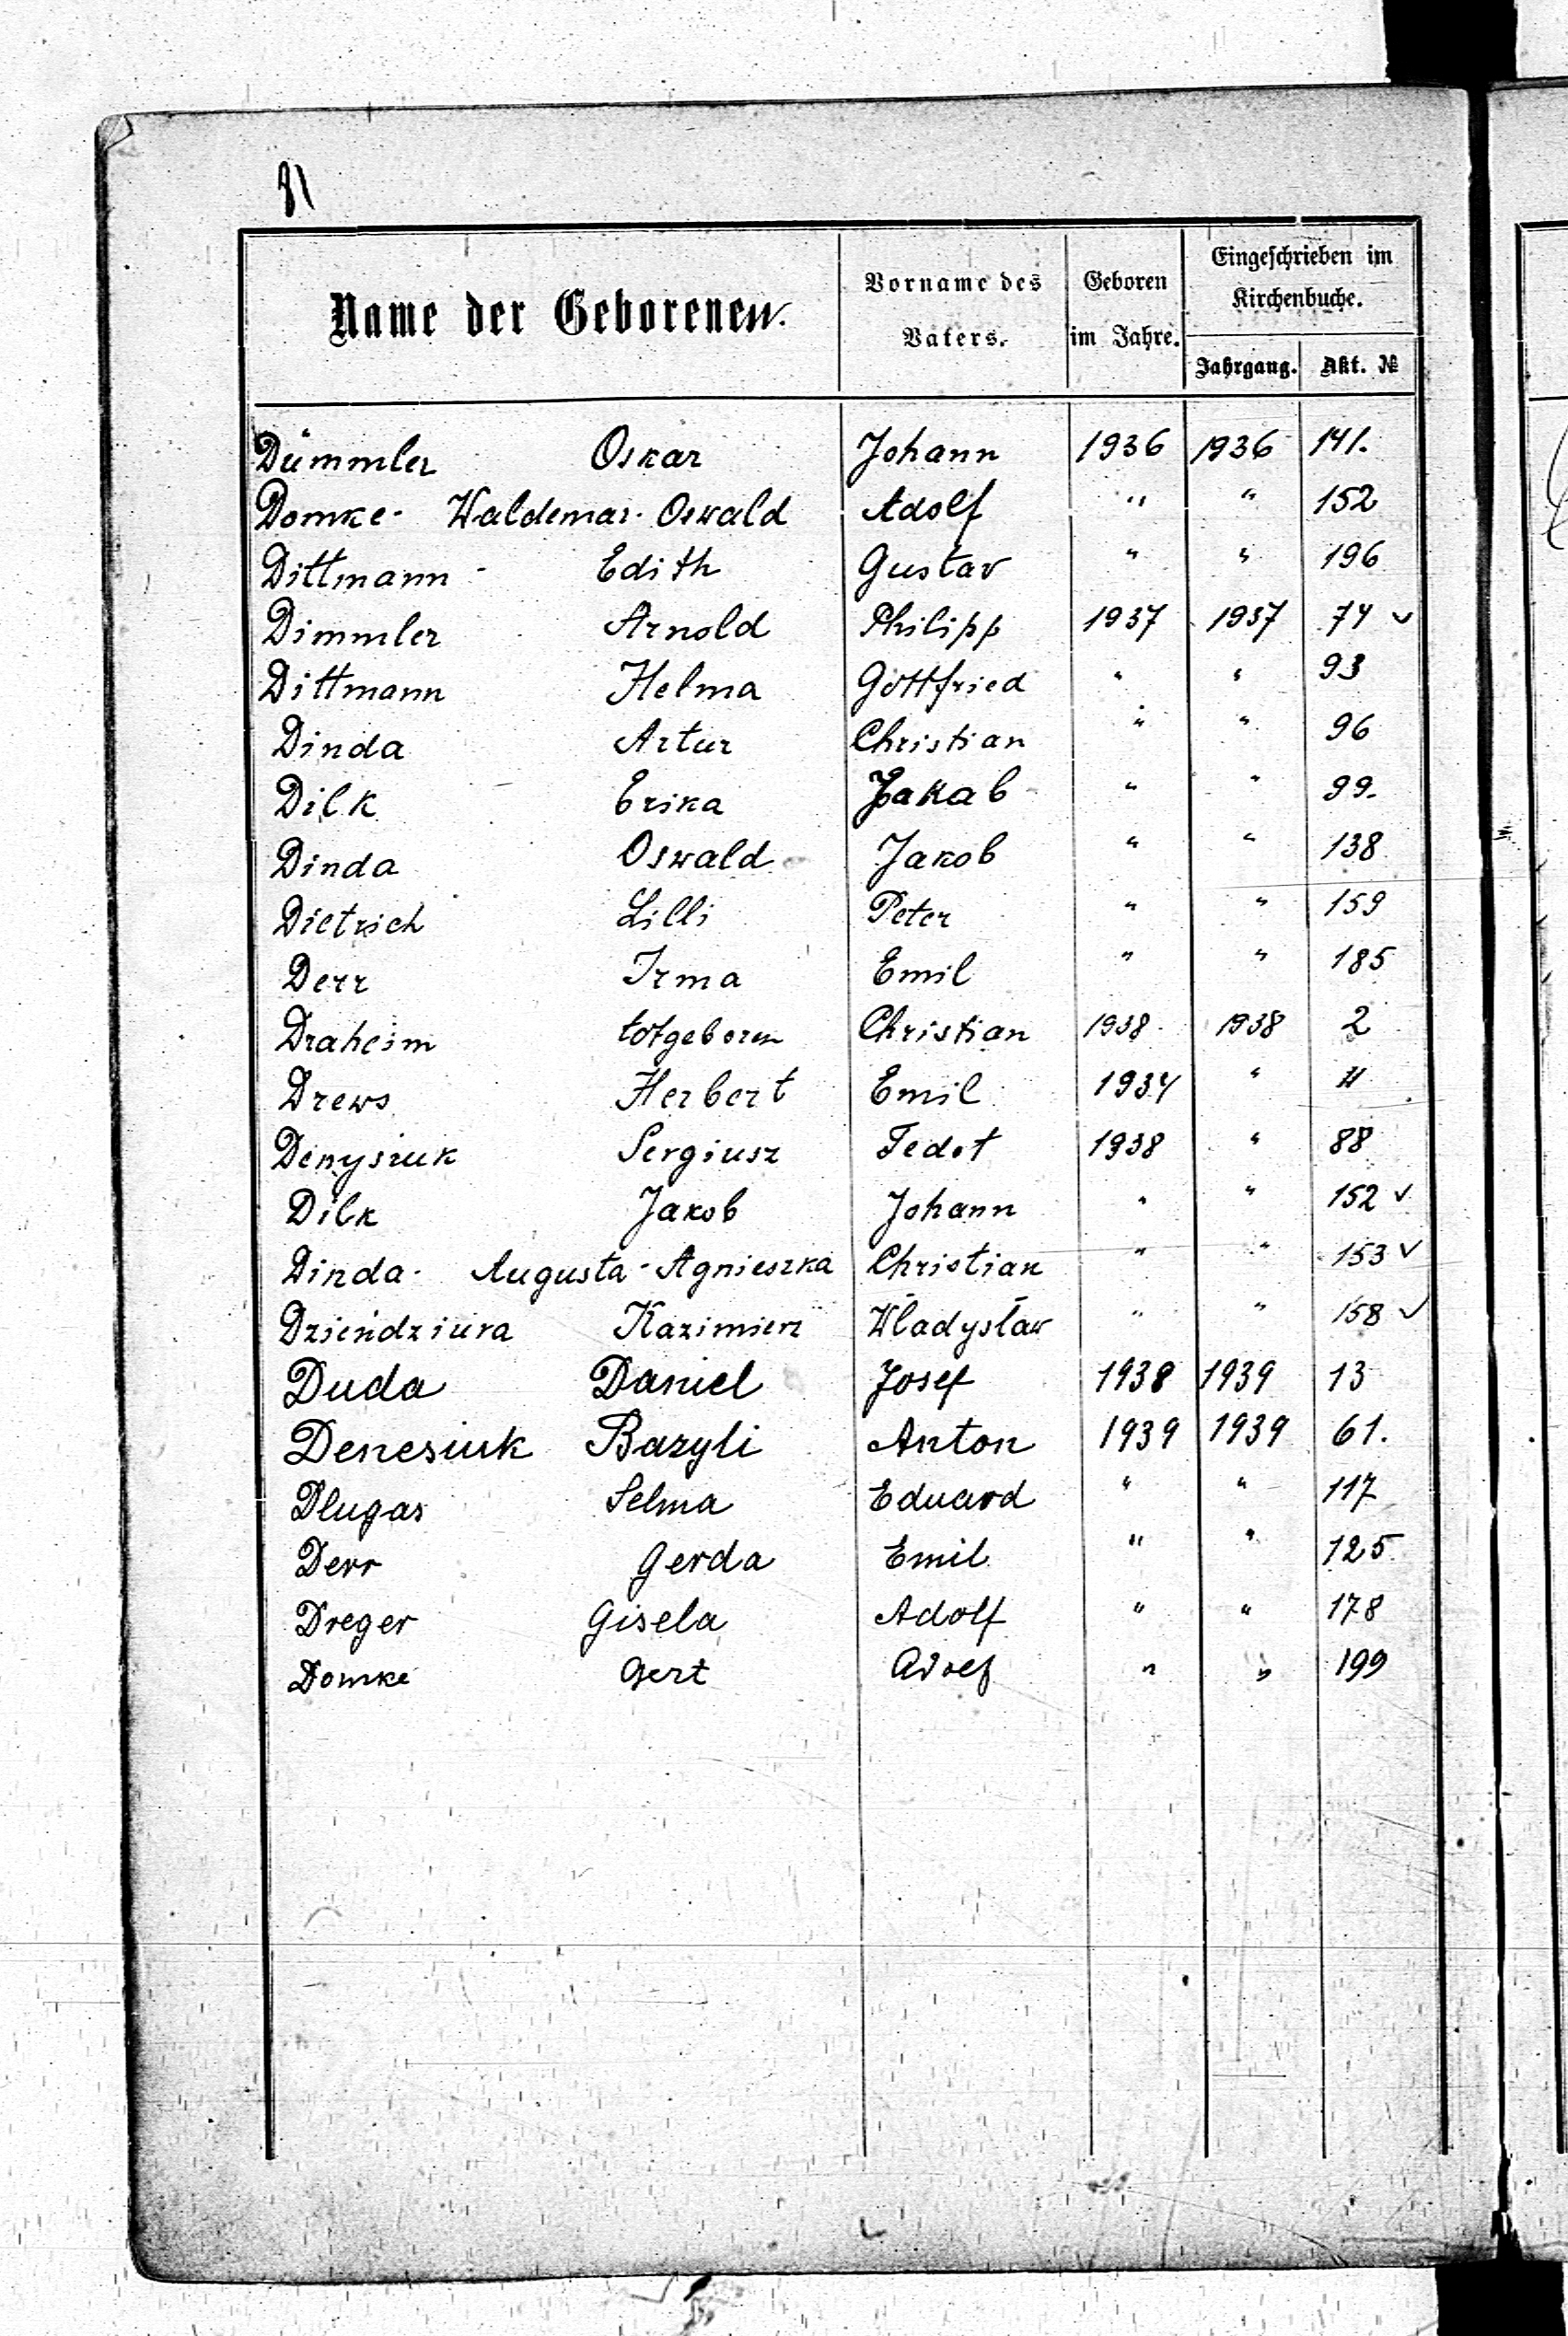 Name der Geborenen.
Vorname des Vaters.
Geboren im Jahre.
Eingeschrieben im Kirchenbuche.
Jahrgang. Akt. №
Dümmler Oskar Johann 1936 1936 141.
Domke - Waldemar - Oswald Adolf " " 152
Dittmann - Edith Gustav " " 196
Dimmler Arnold Philipp 1937 1937 74 ✓
Dittmann Helma Gottfried " " 93
Dinda Artur Christian " " 96
Dilk Erika Jakab " " 99.
Dinda Oswald Jakob " " 138
Dietrich Lilli Peter " " 159
Derr Irma Emil " " 185
Draheim totgeboren Christian 1938 1938 2
Drews Herbert Emil 1934 "
Denysiuk Sergiusz Fedot 1938 " 88
Dilk Jakob Johann " " 152 ✓
Dinda - Augusta - Agnieszka Christian " " 153 ✓
Dzieńdziura Kazimierz Władysław " " 158 ✓
Duda Daniel Josef 1938 1939 13
Denesiuk Bazyli Anton 1939 1939 61.
Dlugas Selma Eduard " " 117
Derr Gerda Emil " " 125
Dreger Gisela Adolf " " 178
Domke Gert Adolf " " 199